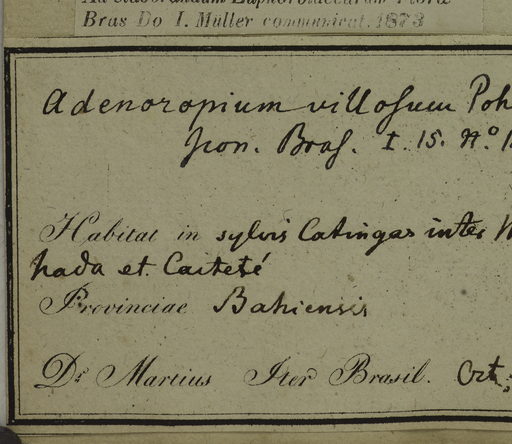 Ad elaborandum Euphorbiacearum Floræ
Bras Do I. Müller communicat. 1873
Adenoropium villosum Poh
Icon. Bras. I. 15. No. 1
Habitat in sylvis Catingas inter
hada et Caiteté
Provinciae Bahiensis
Dr Martius Iter Brasil. Oct.